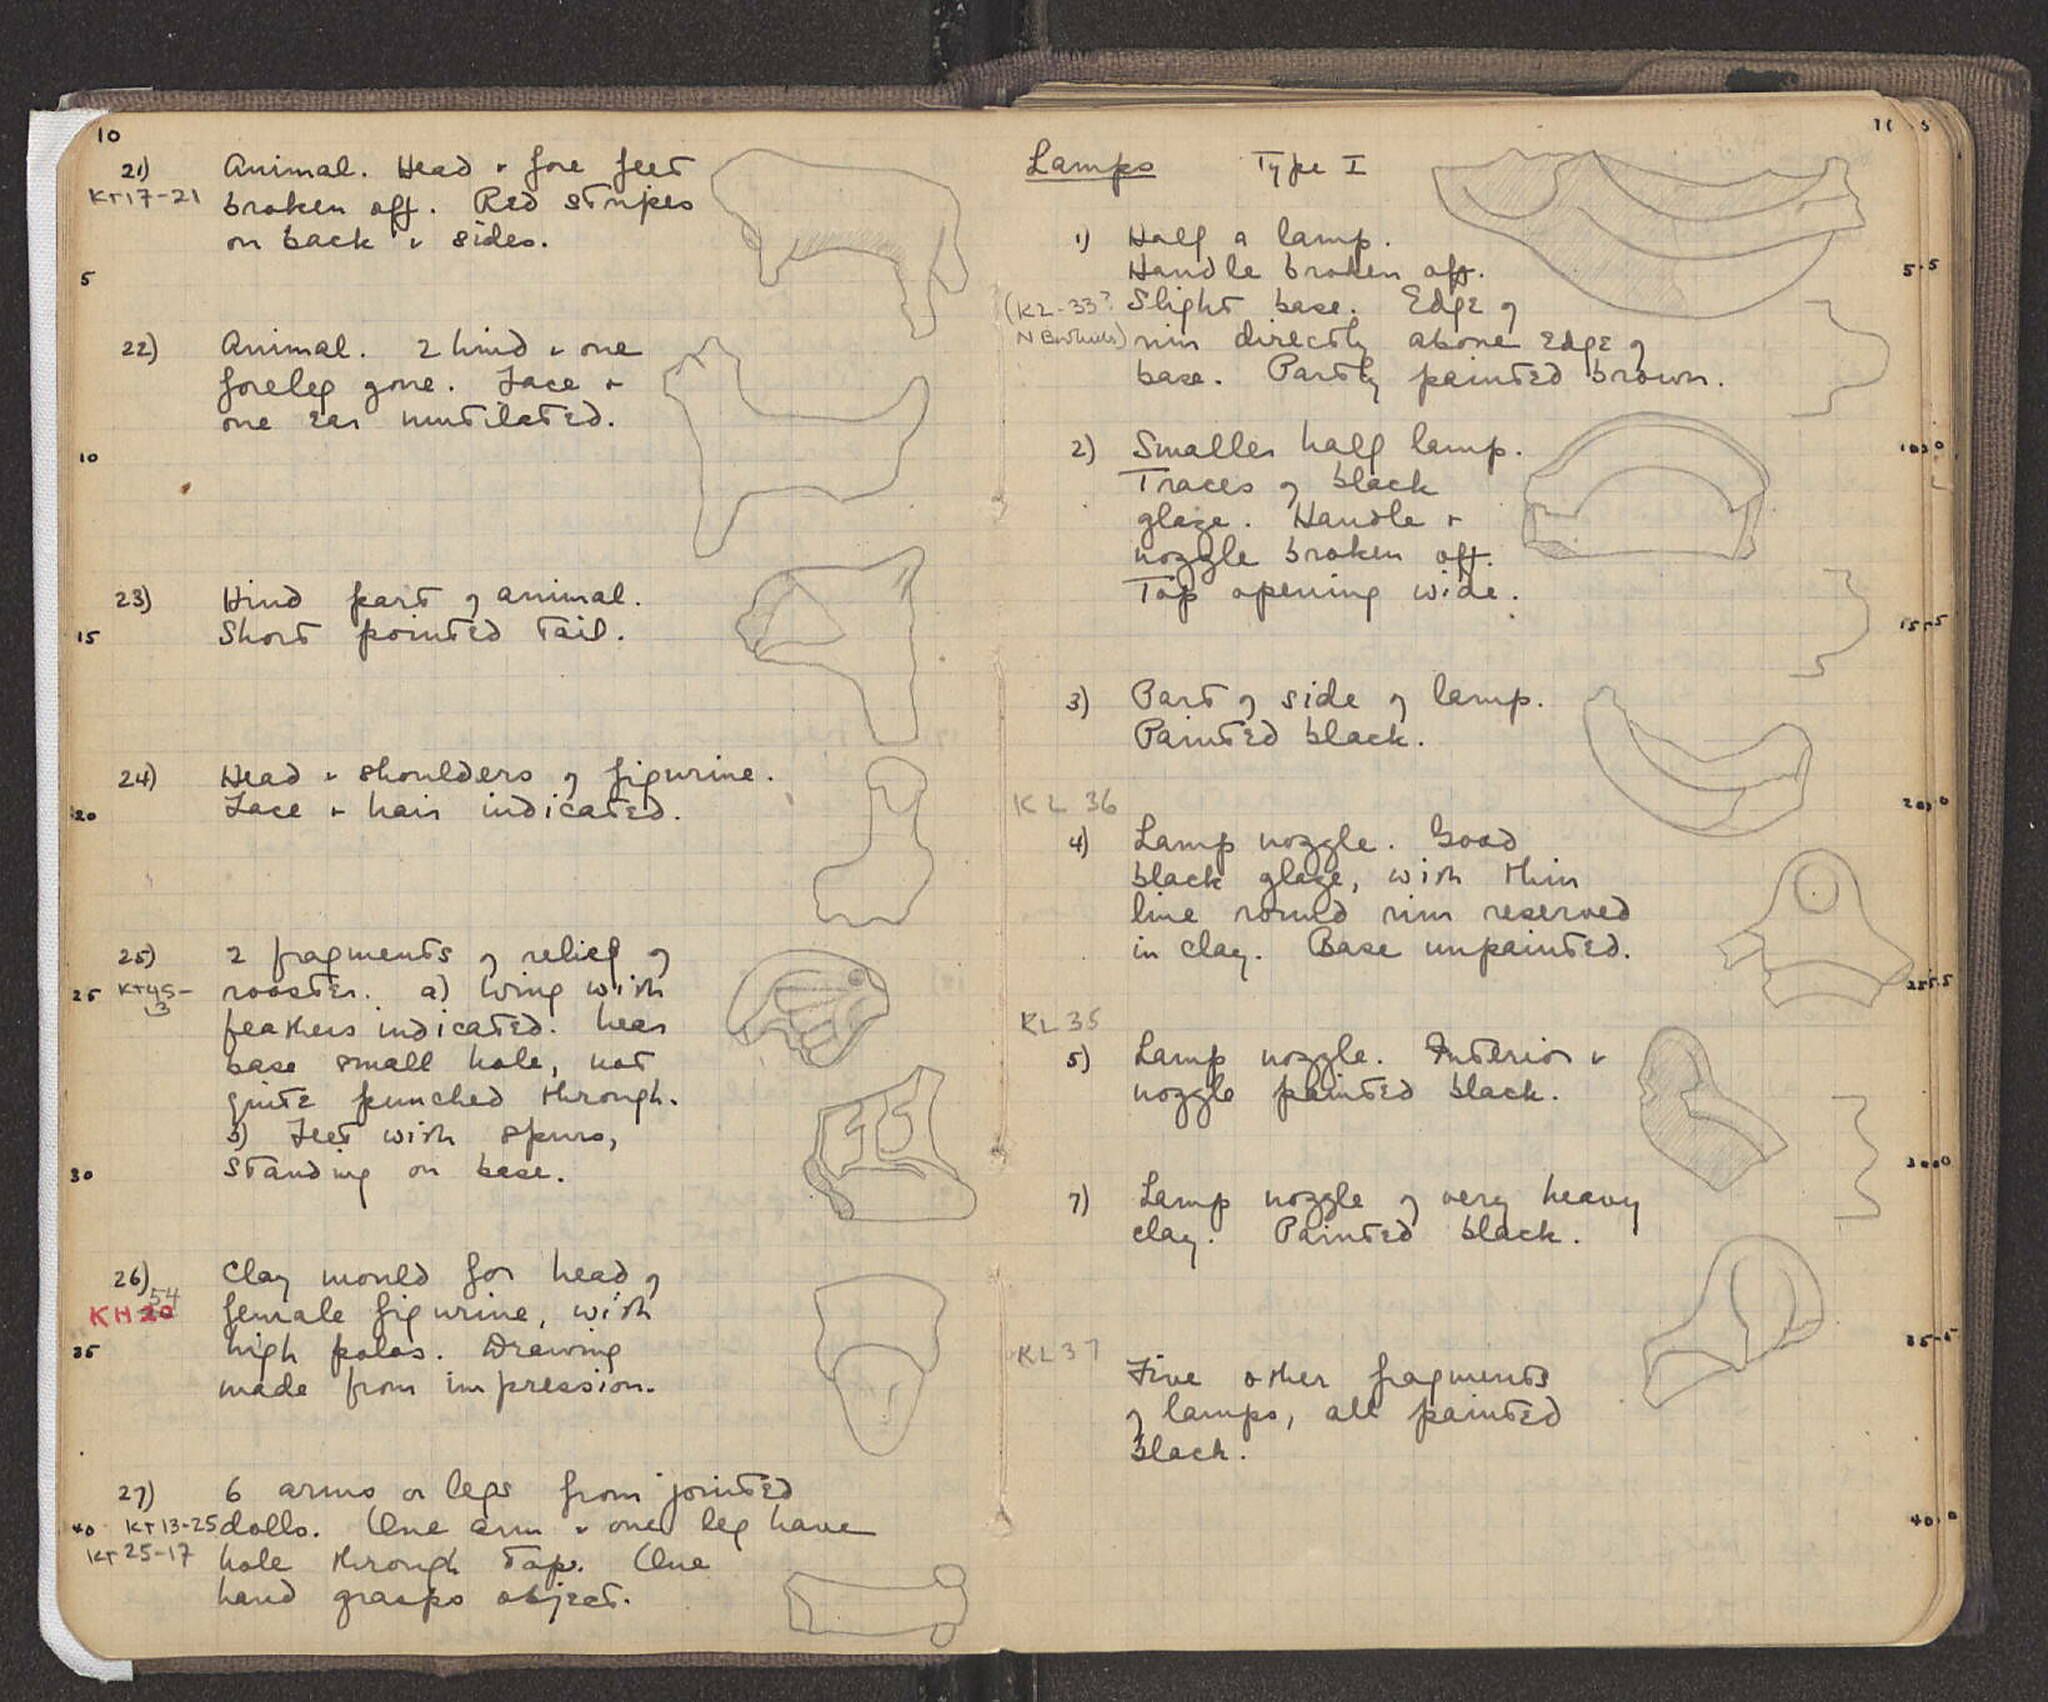 10
21) Animal. Head + fore feet
KT17-21 broken off. Red stripes
on back + sides.
5
22) Animal. 2 hind + one
foreleg gone. Face +
one ear mutilated.
10
23) Hind part of animal.
15 Short pointed tail.
24) Head + shoulders of figurine.
20 Face + hair indicated.
25) 2 fragments of relief of
25 KT45-3 rooster. a) Wing with
feathers indicated. Near
base small hole, not
quite punched through.
b) Feet with spurs,
30 standing on base.
26) Clay mould for head of
54
KH 20 female figurine, with
35 high polos. Drawing
made from impression.
27) 6 arms or legs from jointed
40 KT13-25 dolls. One arm + one leg have
KT25-17 hole through top. One
hand grasps object.
11
Lamps Type I
1) Half a lamp.
Handle broken off.
5
(KL-33? Slight base. Edge of
rim directly above edge of
base. Partly painted brown.
2) Smaller half lamp.
10
Traces of black
glaze. Handle +
nozzle broken off.
Top opening wide.
15
3) Part of side of lamp.
Painted black.
KL 36
20
4) Lamp nozzle. Good
black glaze, with thin
line round rim reserved
in clay. Base unpainted.
25
KL 35
5) Lamp nozzle. Interior +
nozzle painted black.
30
7) Lamp nozzle of very heavy
clay. Painted black.
35
KL 37
Five other fragments
of lamps, all painted
black.
40